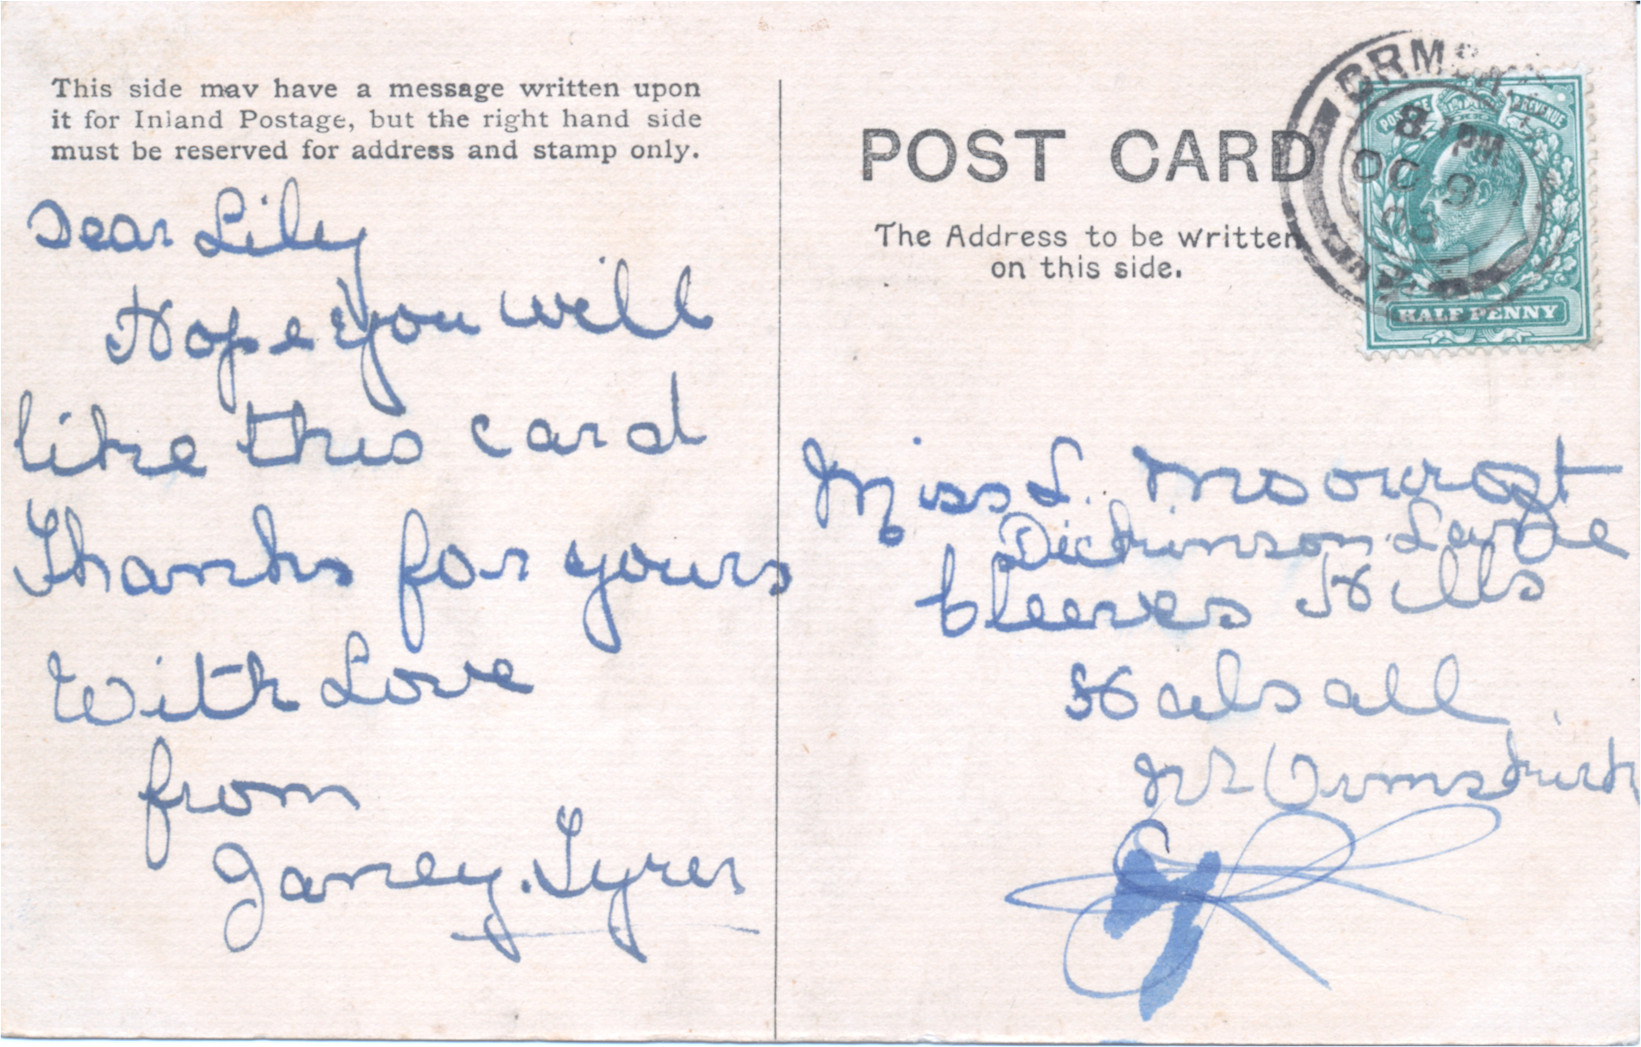 This side may have a message written upon
it for Inland Postage, but the right hand side
must be reserved for address and stamp only.
Dear Lily
Hope you will
like this card
Thanks for yours
With Love
from
Janey. Tyrer
POST CARD
The Address to be written
on this side.
ORMSKIRK
8 PM
OC 9
POSTAGE REVENUE
HALF PENNY
Miss L. Moorcroft
Dickinson Lane
Cleeves Hills
Halsall
Nr Ormskirk